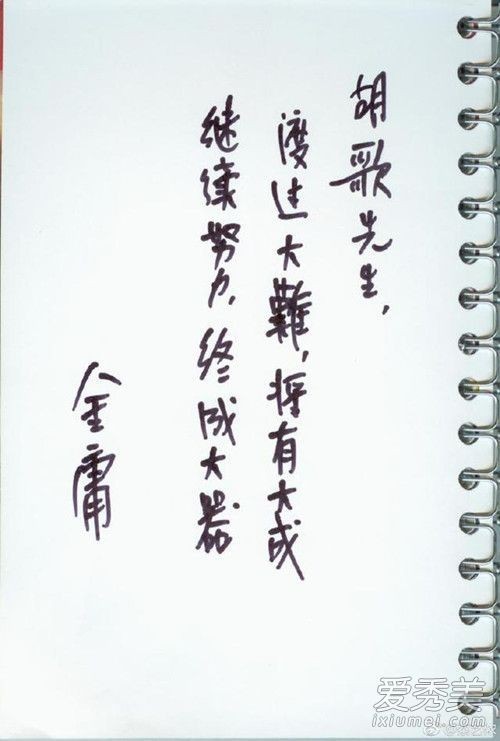 胡歌先生，
渡过大難，将有大成
继续努力，终成大器
金庸
爱秀美
ixiumei.com